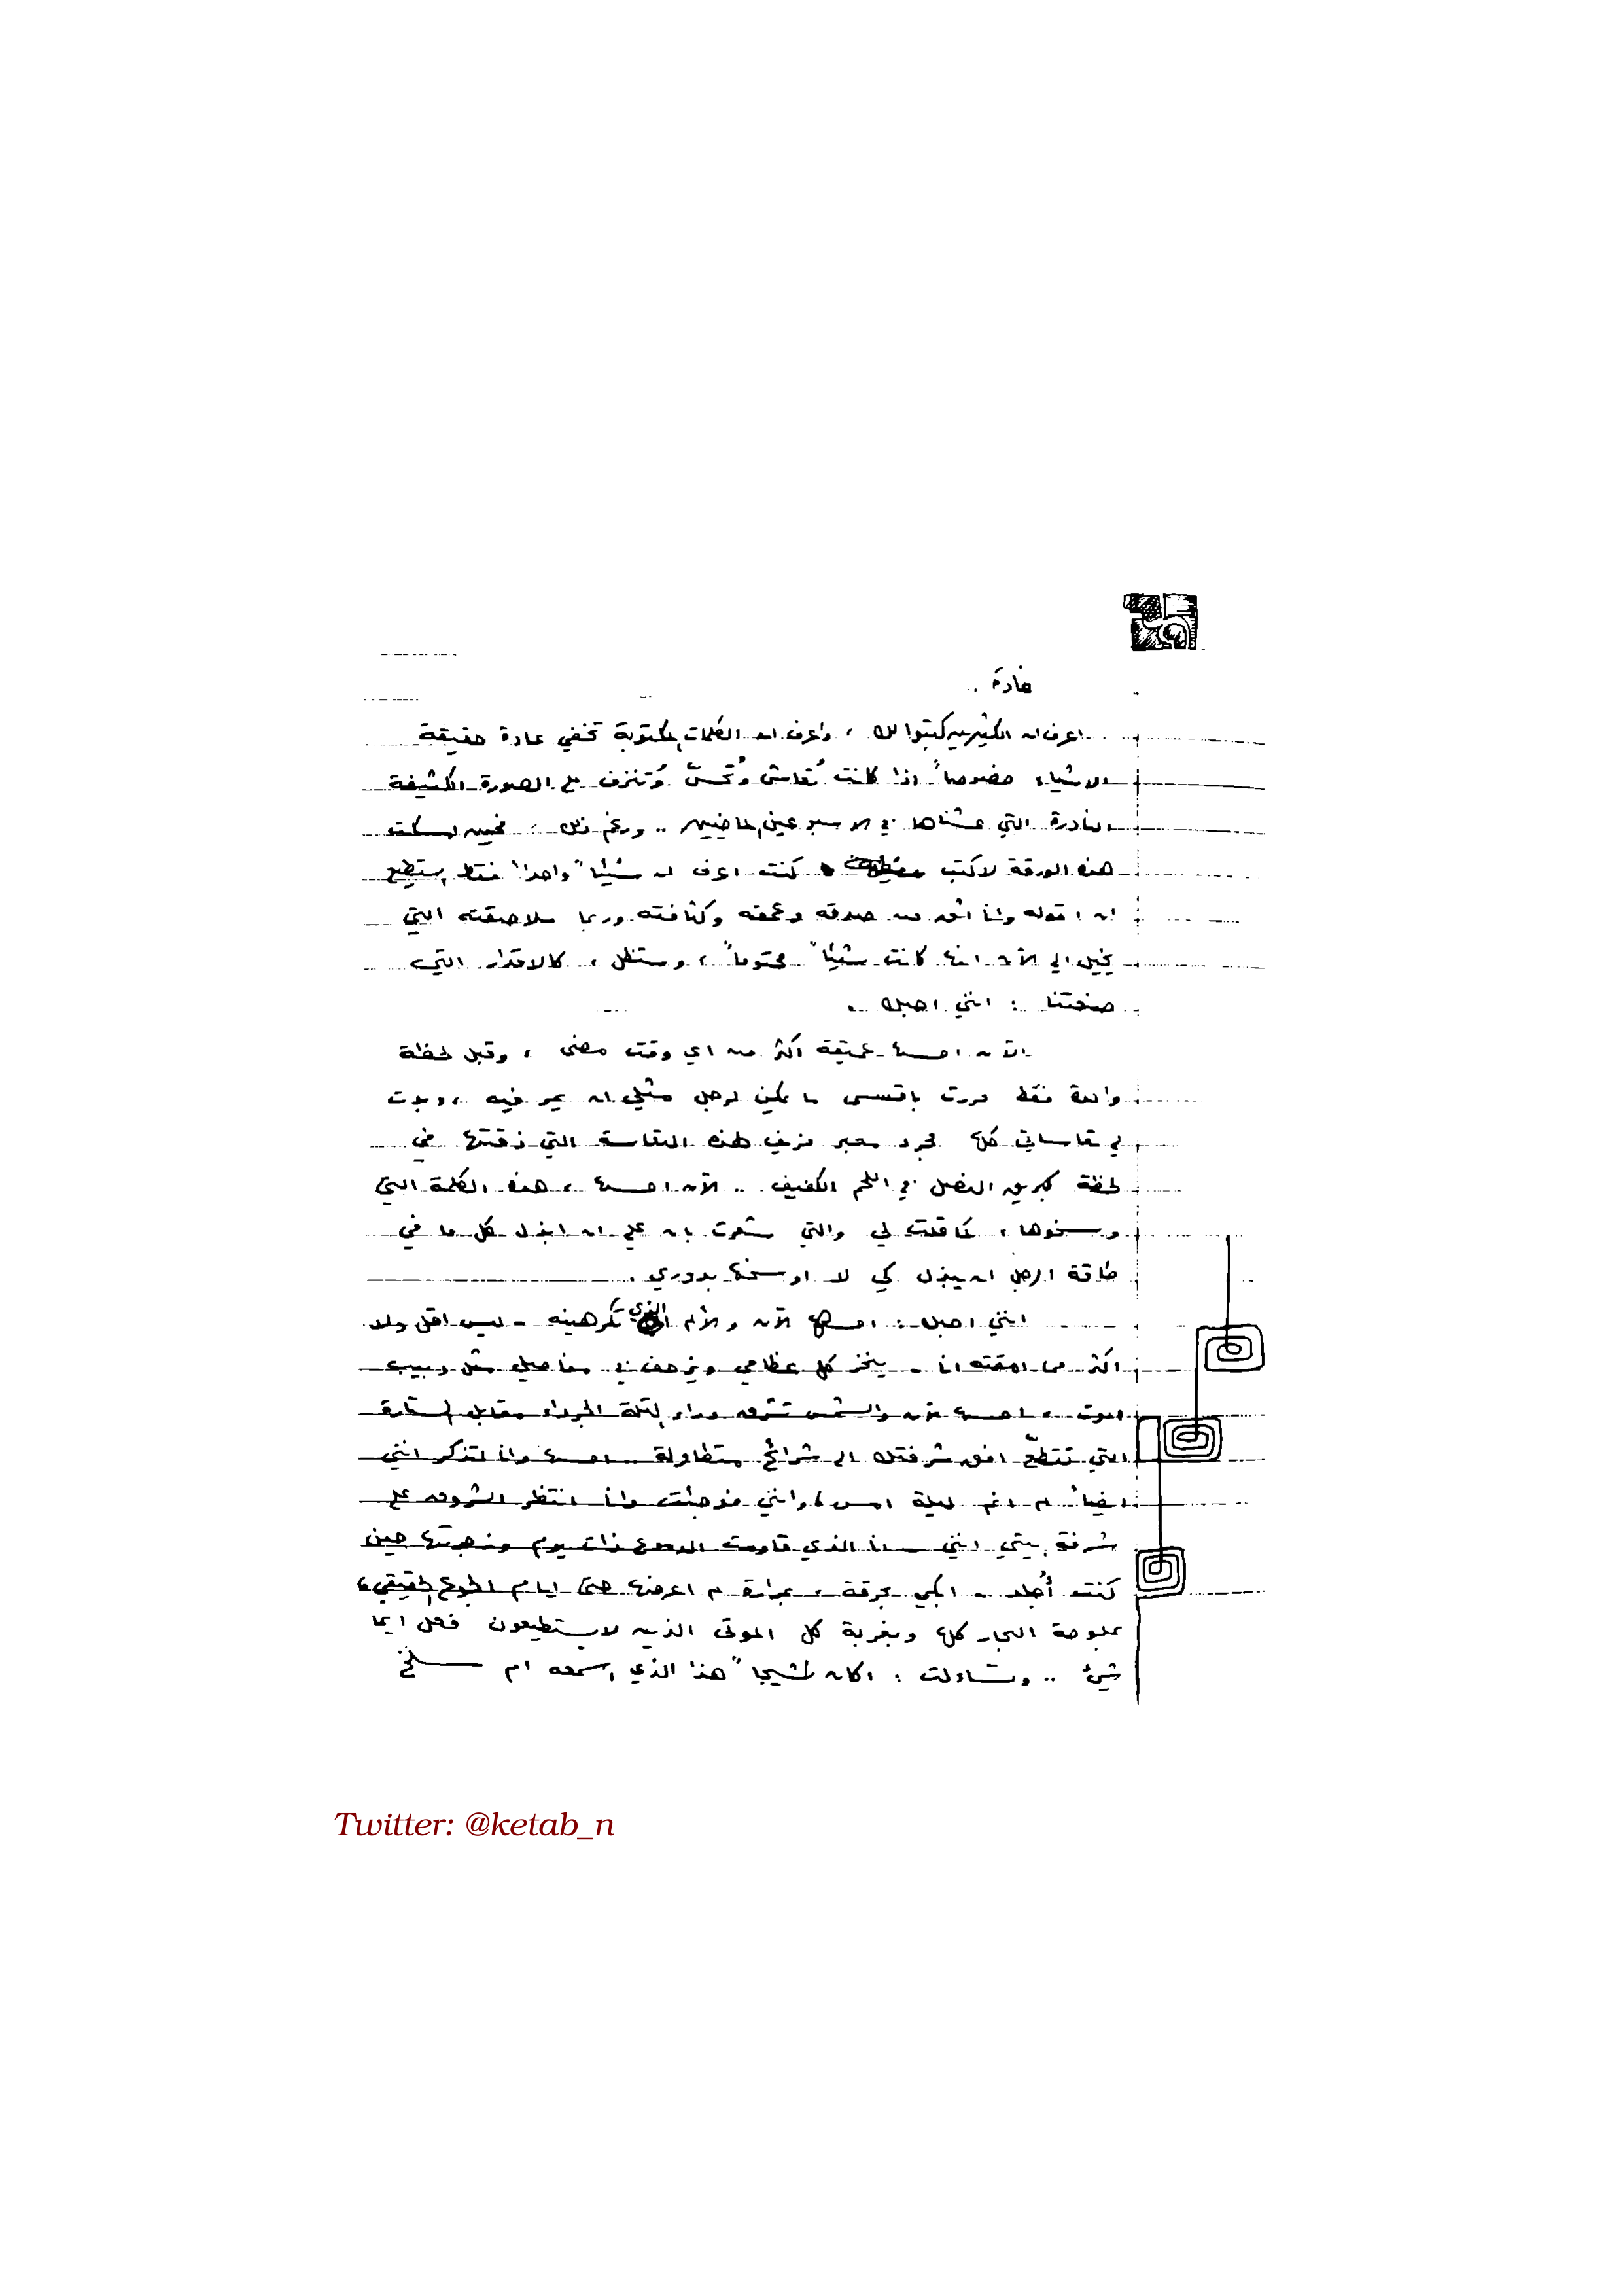 غادة .
اعرف ان الكثيرين كتبوا لك ، واعرف ان الكلمات المكتوبة تخفي عادة حقيقة
الاشياء خصوصاً اذا كانت تُعاش وتُحسّ وتُنزف على الصورة الكثيفة
النادرة التي عشناها في الاسبوعين الماضيين .. ورغم ذلك ، فحين امسكت
هذه الورقة لاكتب كنت اعرف ان شيئاً واحداً فقط استطيع
ان اقوله وانا اثق من صدقه وعمقه وكثافته وربما ملاصقته التي
يخيل الي الآن انها كانت شيئاً محتوماً ، وستظل ، كالاقدار التي
صنعتنا : انني احبك .
الآن احسها عميقة اكثر من اي وقت مضى ، وقبل لحظة
واحدة فقط مررت باقسى ما يمكن لرجل مثلي ان يمر فيه ، وبدت
لي تعاساتي كلها مجرد معبر مزيف لهذه التعاسة التي ذقتها في
لحظة كبريق النصل في اللحم الكفيف .. الآن احسها ، هذه الكلمة التي
وسخوها ، كما قلت لي والتي شعرت بان علي ان ابذل كل ما في
طاقة الرجل ان يبذل كي لا اوسخها بدوري .
انني احبك : احسها الآن والألم الذي تكرهينه - ليس اقل ولا
اكثر مما امقته انا - ينخر كل عظامي ويزحف في مفاصلي مثل دبيب
الموت . احسها الآن والشمس تشرق وراء التلة الجرداء مقابل الستارة
التي تقطّع افق شرفتك الى شرائح متطاولة .. احسها وانا اتذكر انني
ايضاً لم انم ليلة امس ، وانني فوجئت وانا انتظر الشروق على
شرفة بيتي انني - انا الذي قاومت الدموع ذات يوم وزجرتها حين
كنت أُجلد - ابكي بحرقة ، بمرارة لم اعرفها حتى ايام الجوع الحقيقي ،
بملوحة البحار كلها وبغربة كل الموتى الذين لا يستطيعون فعل ايما
شيء .. وتساءلت : اكان نشيجاً هذا الذي اسمعه ام سلخ
Twitter: @ketab_n